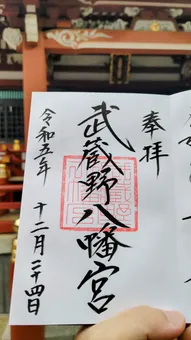 奉拝
武蔵野八幡宮
令和五年
十二月二十四日